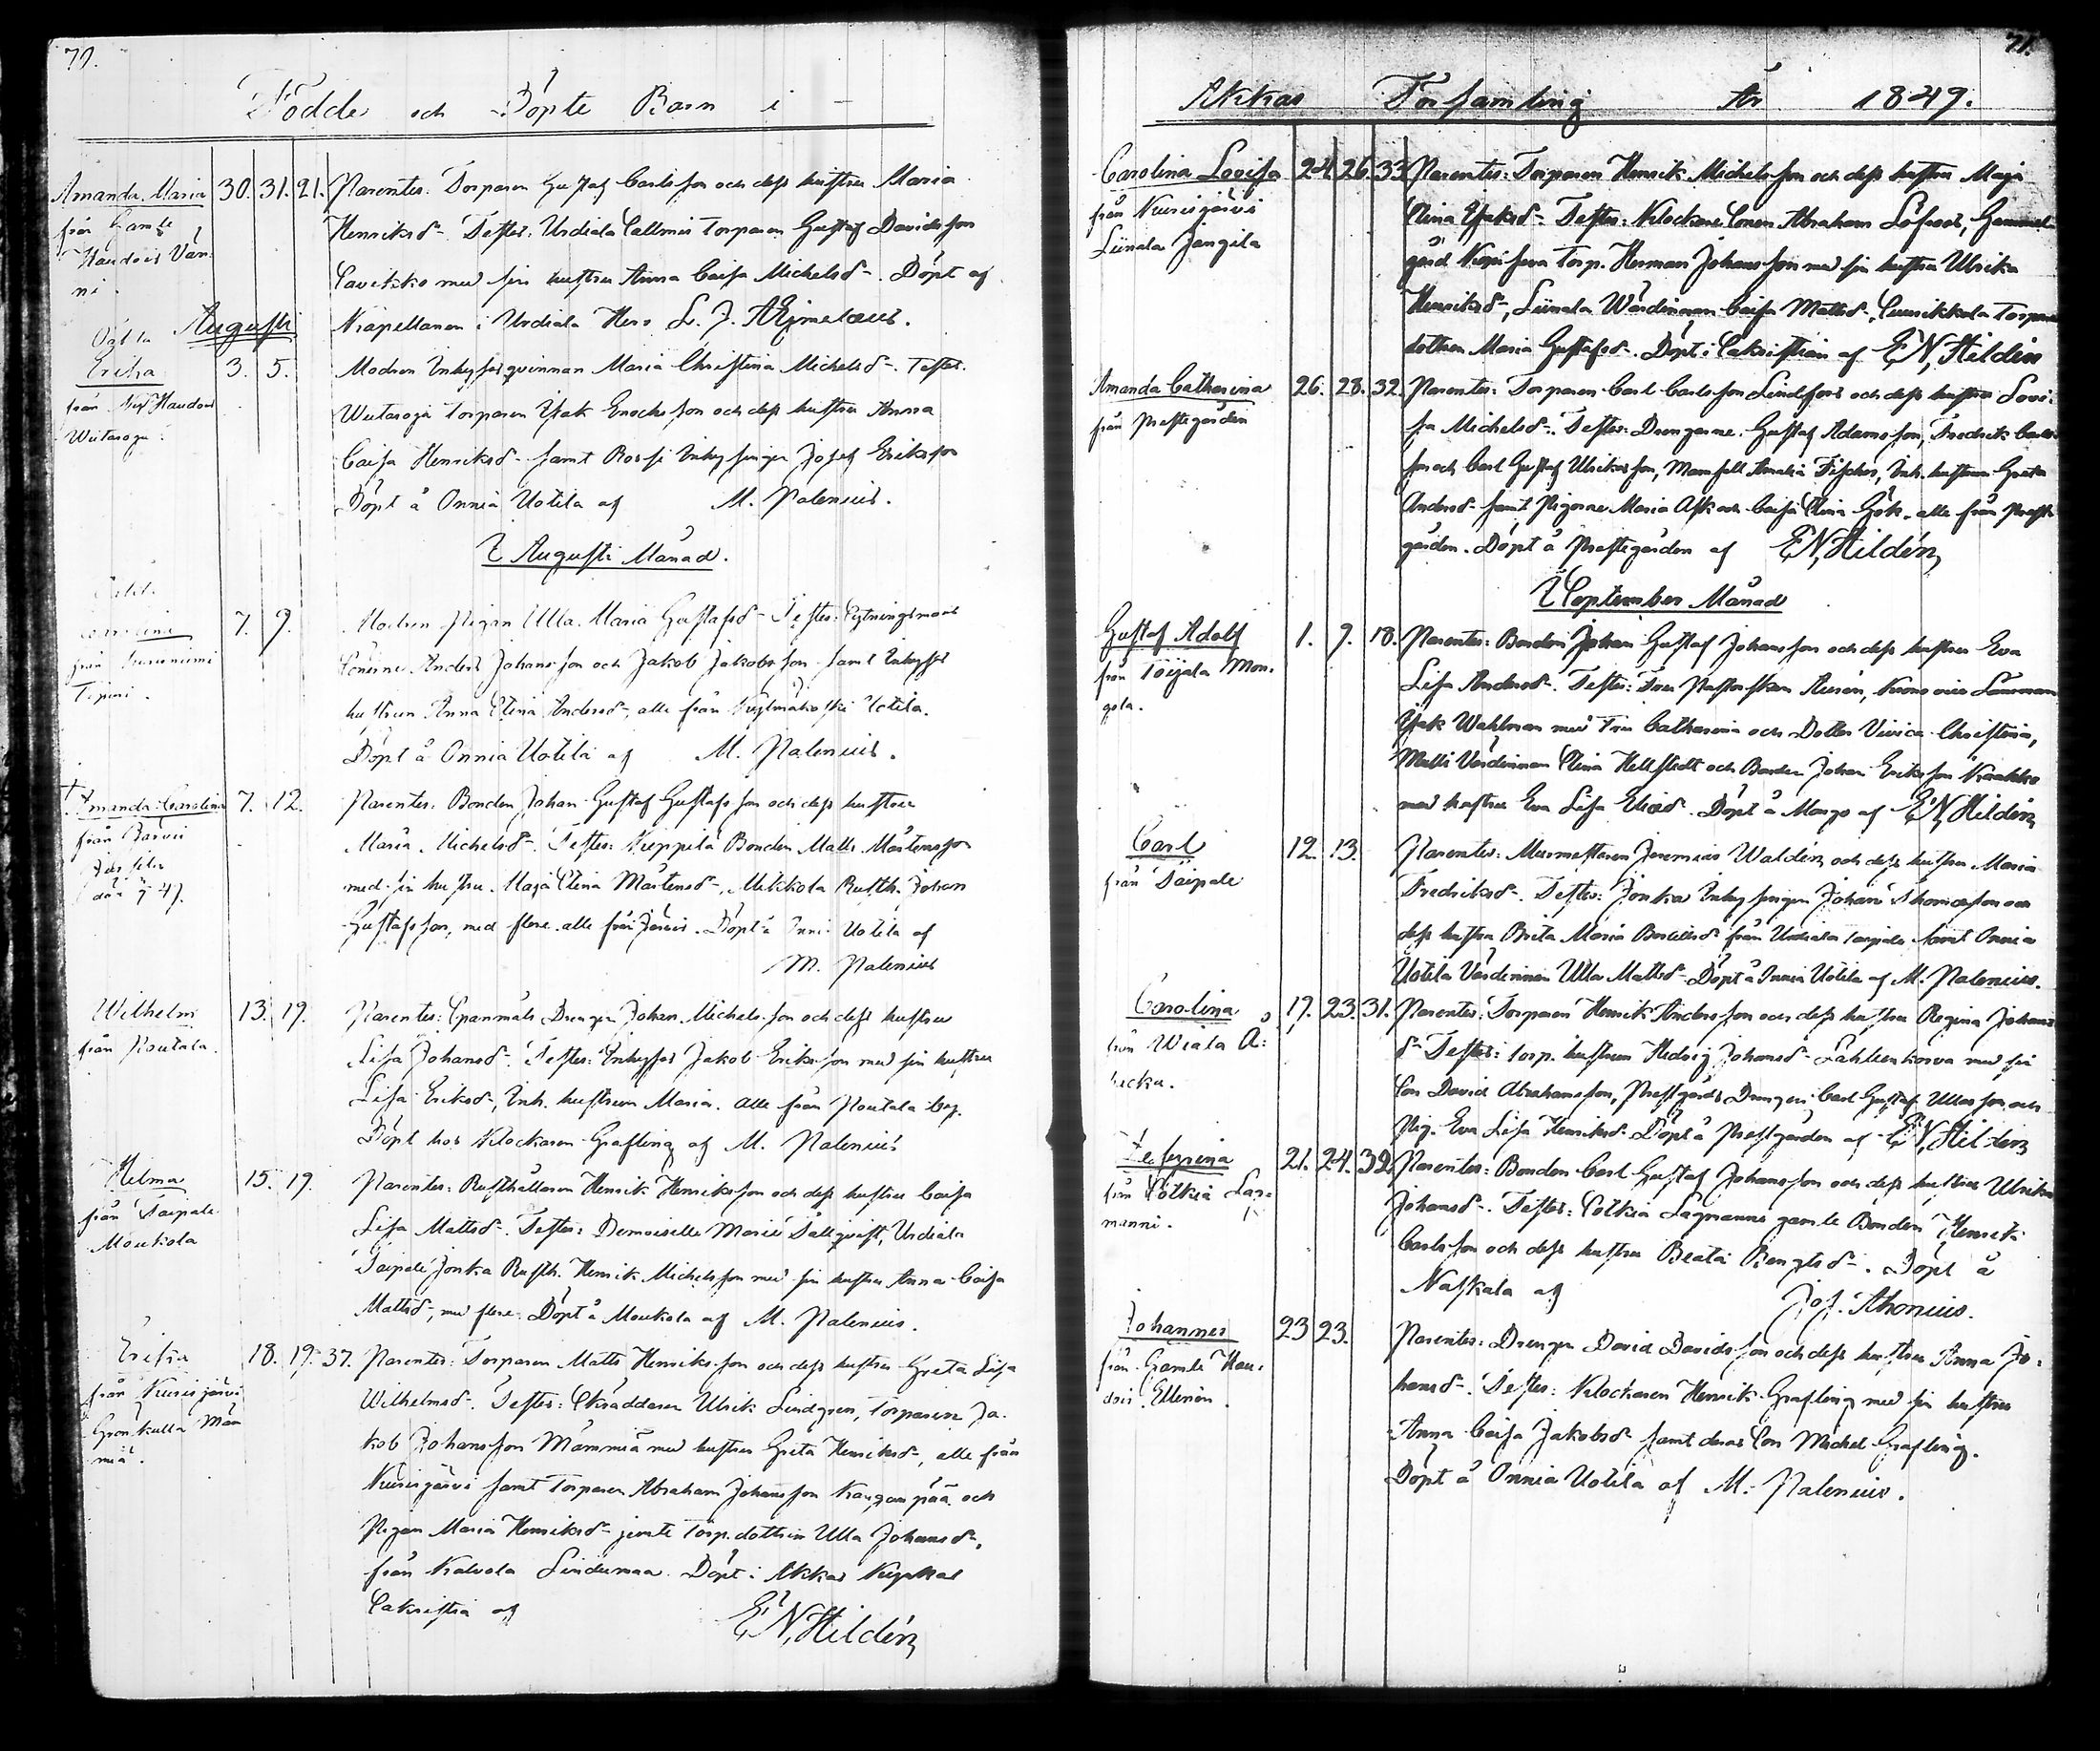 70.
Födde och Döpte Barn i
Amanda Maria 30. 31. 21. Parentes: Torparen Gustaf Carlsson och dess hustru Maria
från Gamle Henriksd:r Testes: Urdiala Torparen Gustaf Davidsson
Haudois Vän:
ni. med sin hustru Anna Caisa Michelsd:r. Döpt af
Kapellanen i Urdiala Herr L. J. Ahjmelæus.
Augusti
Oäkta
Erika 3. 5. Modren Inhysesqvinnan Maria Christina Michelsd:r. Testes:
från Nyy Haudois Torparen Isak Enochsson och dess hustru Anna
Caisa Henriksd:r samt Inhysingen Josef Eriksson
Döpt å Onnia Uotila af M. Palenius.
I Augusti Månad.
Oäkt.
7. 9. Modren Pigan Ulla Maria Gustafsd:r Testes:
från Anders Johansson och Jakob Jakobsson samt Inhyses
hustrun Anna Elina Andersd:r, alle från Uotila.
Döpt å Onnia Uotila af M. Palenius.
† Amanda Carolina 7. 12. Parentes: Bonden Johan Gustaf Gustafsson och dess hustru
från Maria Michelsd:r. Testes: Bonden Matts Mårtensson
med sin hustru Maja Elina Mårtensd:r, Mikkola Rusth. Johan
Gustafsson, med flere alle från Jarvis. Döpt å Onnia Uotila af
M. Palenius
Wilhelm 13. 19. Parentes: Spanmåls Drengen Johan Michelsson och dess hustru
från Routala. Lisa Johansd:r Testes: Inhyses Jakob Eriksson med sin hustru
Lisa Eriksd:r, Inh. hustrun Maria. alle från Routala by.
Döpt hos Klockaren Grafling af M. Palenius
Helma 15. 19. Parentes: Rusthållaren Henrik Henriksson och dess hustru Caisa
från Taipale Lisa Mattsd:r. Testes: Demoiselle Maria Sällqvist, Urdiala
Moukola Taipale Jonka Rusth. Henrik Michelsson med sin hustru Anna Caisa
Mattsd:r, med flere Döpt å Moukola af M. Palenius.
Erika 18. 19. 37. Parentes: Torparen Matts Henriksson och dess hustru Greta Lisa
från Kurisjärvi Wilhelmsd:r. Testes: Skräddaren Ulrik Lindgren, Torparen Ja-
Grönkulla Mäm kob Johansson Mämmiä med hustru Greta Henriksd:r, alle från
miä. Kurisjärvi samt Torparen Abraham Johansson Kangan pää och
Pigan Maria Henriksd:r jemte Torp.dottren Ulla Johansd:r,
från Kalvola Döpt i Akkas Kyrkas
Sakristia af E. N. Hildén
71.
Akkas Församling År 1849.
Carolina Lovisa 24. 26. 33. Parentes: Torparen Henrik Michelsson och dess hustru Maja
från Kurisjärvi Elina Isaksd:r Testes: Klockare Sonen Abraham Löfroos, Gammel
Liinala Jangila gård Torp. Herman Johansson med sin hustru Ulrika
Henriksd:r, Liinala Wärdinnan Caisa Mattsd:r, Torpare
dottren Maria Gustafsd:r. Döpt i Sakristian af E. N. Hildén
Amanda Catharina 26. 28. 32. Parentes: Torparen Carl Carlsson Lindfors och dess hustru Lovi-
från Prestegården sa Michelsd:r. Testes: Drengarne Gustaf Adamsson, Fredrik Carls
son och Carl Gustaf Ulriksson, Mamsell Amalia Fischer, Inh. hustrun Greta
Andersd:r samt Pigorne Maria Ask och Caisa Elina Gök, alle från Prest
gården. Döpt å Prestegården af E. N. Hildén
I September Månad
Gustaf Adolf 1. 9. 18. Parentes: Bonden Johan Gustaf Johansson och dess hustru Eva
från Toijala Mon- Lisa Andersd:r. Testes: Fru Pastorskan Krono Länsman
gola. Isak Wahlman med Fru Catharina och Dotter Vivica Christina,
Matti Värdinnan Elina Hellstedt och Bonden Johan Eriksson Kaakko
med hustru Eva Lisa Eliasd:r. Döpt å Mongo af E N Hildén
Carl 12. 13. Parentes: Murmästaren Jeremias Waldén och dess hustru Maria
från Taipale Fredriksd:r. Testes: Jonka Inhysingen Johan Thomasson och
dess hustru Brita Maria från Urdiala Taipale samt Onnia
Uotila Värdinnan Ulla Mattsd:r Döpt å Onnia Uotila af M. Palenius.
Carolina 17. 23. 31. Parentes: Torparen Henrik Andersson och dess hustru Regina Johans
från Wiala Å: d:r Testes: Torp. hustrun Hedvig Johansd:r Lahlenkorva med sin
backa. Son David Abrahamsson, Prestgårds Drengen Carl Gustaf Ullasson och
Pig. Eva Lisa Henriksd:r Döpt å Prestgården af E. N. Hildén
Zefyrina 21. 24. 32. Parentes: Bonden Carl Gustaf Johansson och dess hustru Ulrika
från Sotkia Lag- Johansd:r. Testes: Sotkia Lagmanni gamle Bonden Henrik
manni. Carlsson och dess hustru Beata Bengtsd:r. Döpt å
Naskala af Jos. Thonius.
Johannes 23 23. Parentes: Drengen David Davidsson och dess hustru Anna Jo-
från Gamle Hau- hansd:r. Testes: Klockaren Henrik Grafling med sin hustru
dois Anna Caisa Jakobsd:r samt deras Son Michel Grafling.
Döpt å Onnia Uotila af M. Palenius.